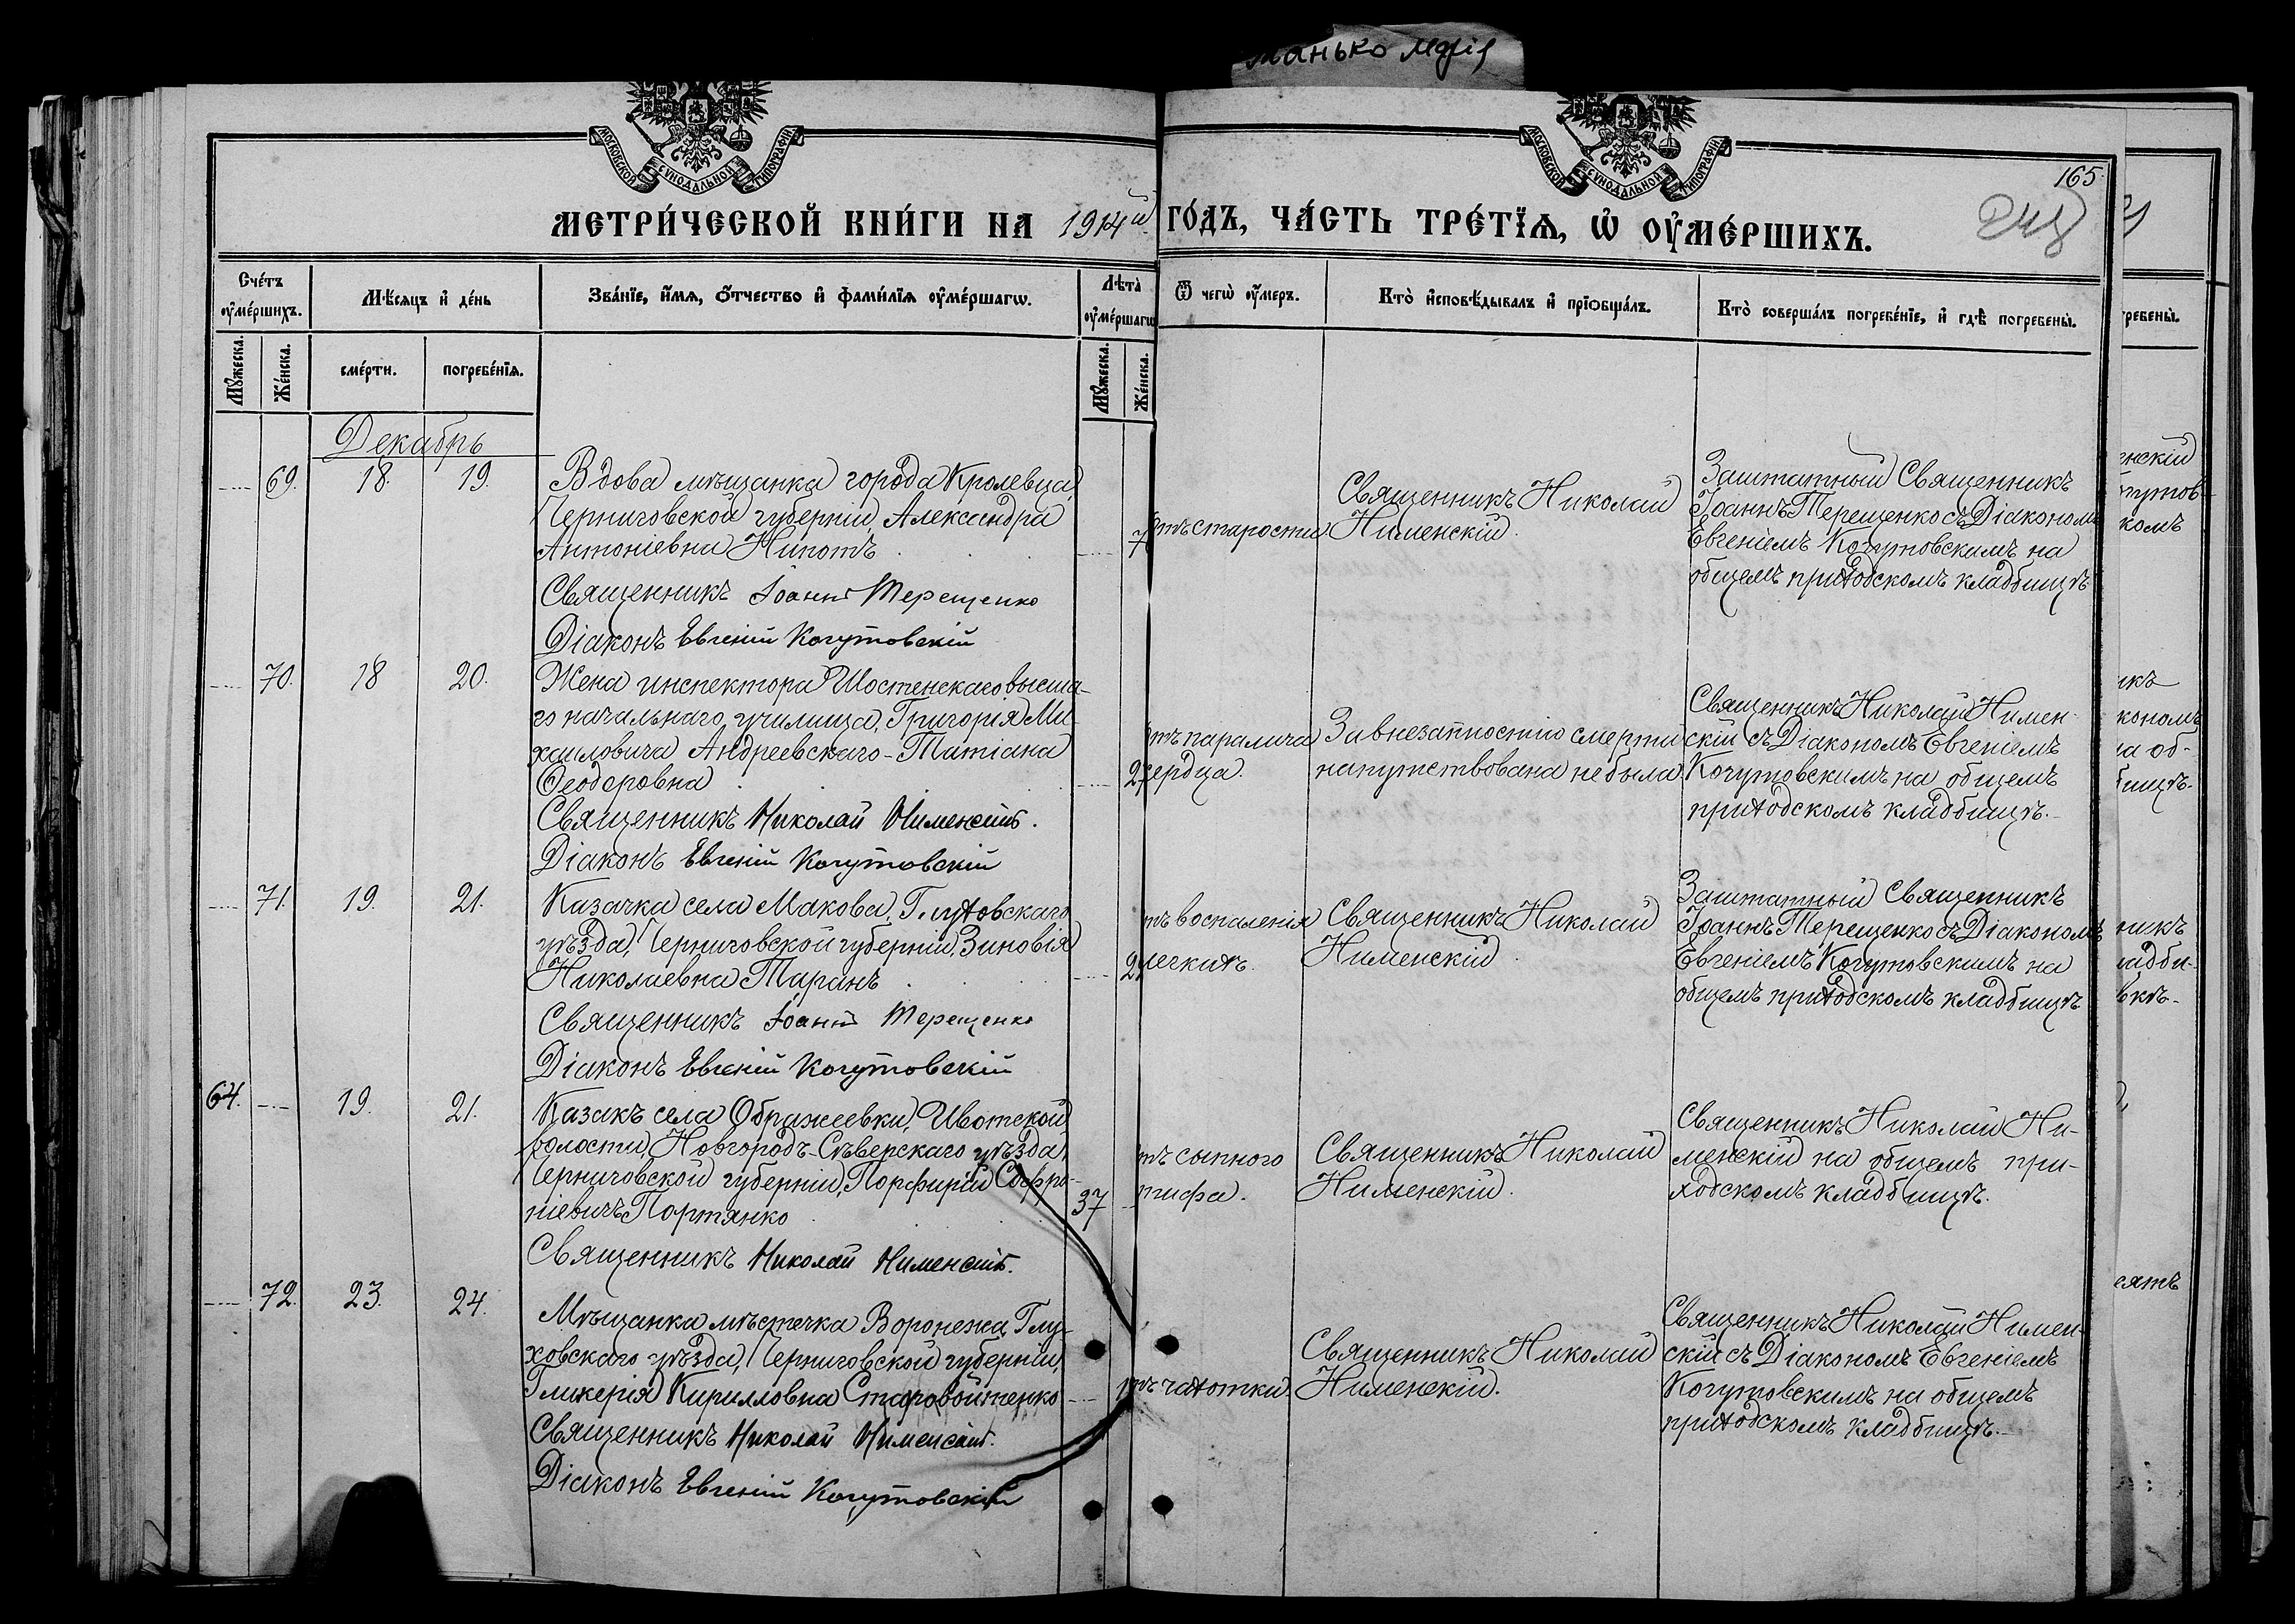 Манько Марія
МОСКОВСКОЙ СУНОДАЛЬНОЙ ТИПОГРАФІИ
МОСКОВСКОЙ СУНОДАЛЬНОЙ ТИПОГРАФІИ
165.
МЕТРИ́ЧЕСКОЙ КНИ́ГИ НА 1914й ГО́ДЪ, ЧА́СТЬ ТРЕ́ТЇѦ, Ѡ҆ ОУ҆МЕ́РШИХЪ.
Сче́тъ оу҆ме́ршихъ.
Мѣ́сяцъ и҆ де́нь
Зва́нїе, и҆́мѧ, ѻ҆́тчество и҆ фами́лїѧ оу҆ме́ршагѡ.
Лѣта̀ оу҆ме́ршагѡ
Ѿ чегѡ̀ оу҆́меръ.
Кто̀ и҆сповѣ́дывалъ и҆ прїѻбща́лъ.
Кто̀ соверша́лъ погребе́нїе, и҆ гдѣ̀ погребены̀.
Мꙋ́жеска.
Же́нска.
сме́рти.
погребе́нїѧ.
Мꙋ́жеска.
Же́нска.
Декабрь
69. 18. 19.
Вдова мѣщанка города Кролевца,
Черниговской губерніи, Александра
Антоніевна Нипотъ
Священникъ Іоаннъ Терещенко
Діаконъ Евгеній Когутовскій
отъ старости.
Священникъ Николай
Нименскій.
Заштатный Священникъ
Іоаннъ Терещенко съ Діакономъ
Евгеніемъ Когутовскимъ на
общемъ приходскомъ кладбищѣ
70. 18 20.
Жена инспектора Шостенскаго высша-
го начальнаго училища, Григорія Ми-
хаиловича Андреевскаго - Татіана
Ѳеодоровна
27
Священникъ Николай Нименскій.
Діаконъ Евгеній Когутовскій
отъ паралича
сердца.
За внезапностію смерти
напутствована не была
Священникъ Николай Нимен-
скій съ Діакономъ Евгеніемъ
Когутовскимъ на общемъ
приходскомъ кладбищѣ.
71. 19. 21.
Казачка села Макова, Глуховскаго
уѣзда, Черниговской губерніи, Зиновія
Николаевна Таранъ
Священникъ Іоаннъ Терещенко
Діаконъ Евгеній Когутовскій
тъ воспаленія
легкихъ.
Священникъ Николай
Нименскій.
Заштатный Священникъ
Іоаннъ Терещенко съ Діакономъ
Евгеніемъ Когутовскимъ на
общемъ приходскомъ кладбищѣ
64. 19. 21.
Казакъ села Ображеевки, Ивотской
волости, Новгородъ-Сѣверскаго уѣзда,
Черниговской губерніи, Порфирій Софро-
ніевичъ Портянко
37
Священникъ Николай Нименскій.
тъ сыпного
тифа.
Священникъ Николай
Нименскій.
Священникъ Николай Ни-
менскій на общемъ при-
ходскомъ кладбищѣ.
72. 23. 24.
Мѣщанка мѣстечка Воронежа, Глу-
ховскаго уѣзда, Черниговской губерніи,
Гликерія Кирилловна Старовойтенко
Священникъ Николай Нименскій.
Діаконъ Евгеній Когутовскій
тъ чахотки.
Священникъ Николай
Нименскій.
Священникъ Николай Нимен-
скій съ Діакономъ Евгеніемъ
Когутовскимъ на общемъ
приходскомъ кладбищѣ.